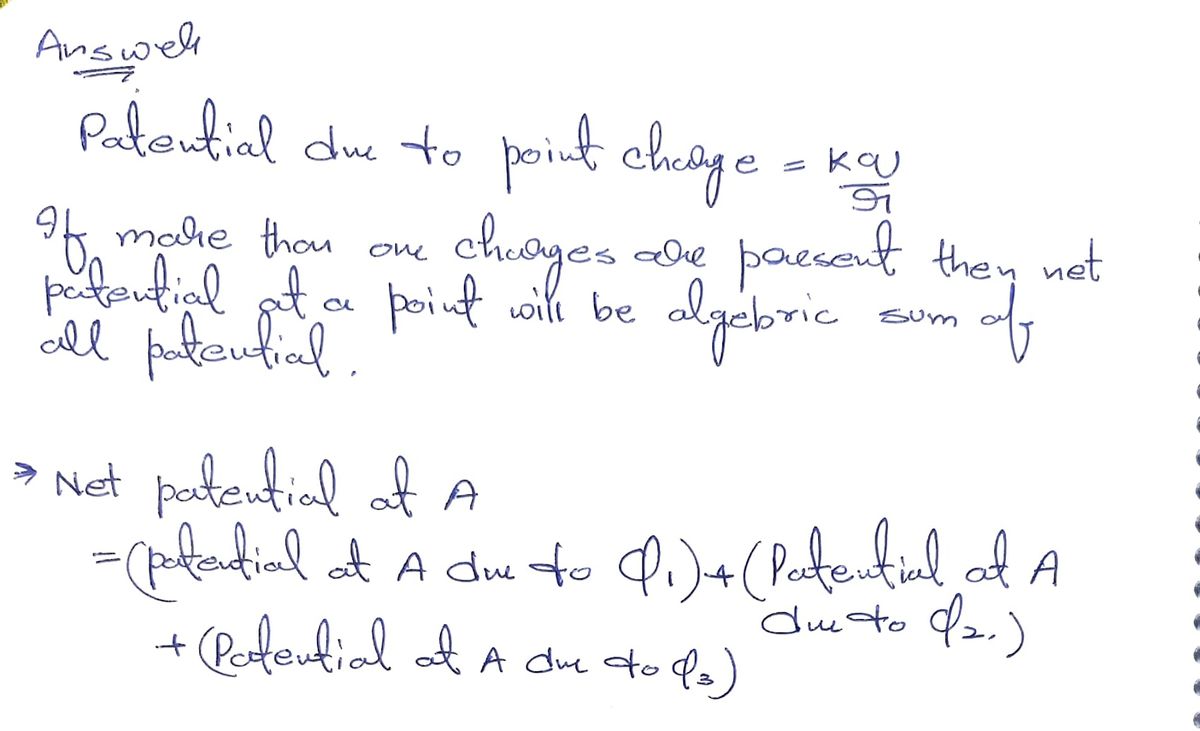 Answer
Potential due to point charge = KQ/r
If more than one charges are present then net
potential at a point will be algebric sum of
all potential.
⇒ Net potential at A
= (potential at A due to Q1) + (Potential at A
due to Q2.)
+ (Potential at A due to Q3)